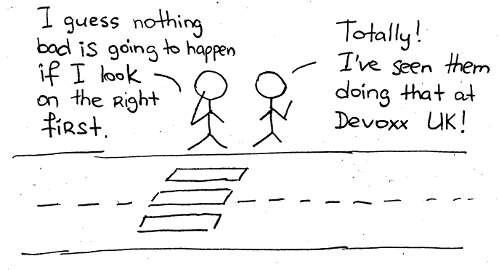 I guess nothing
bad is going to happen
if I look
on the Right
first.
Totally!
I've seen them
doing that at
Devoxx UK!